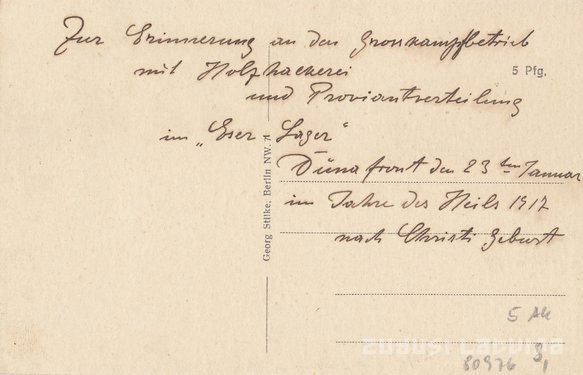 Zur Erinnerung an den Grosskampfbetrieb
mit Holzhackerei
5 Pfg.
und Proviantverteilung
im „Eser-Lager“
Düna front den 23ten Januar
im Jahre des Heils 1917
nach Christi Geburt
Georg Stilke, Berlin NW. 7.
5 Ak
80976